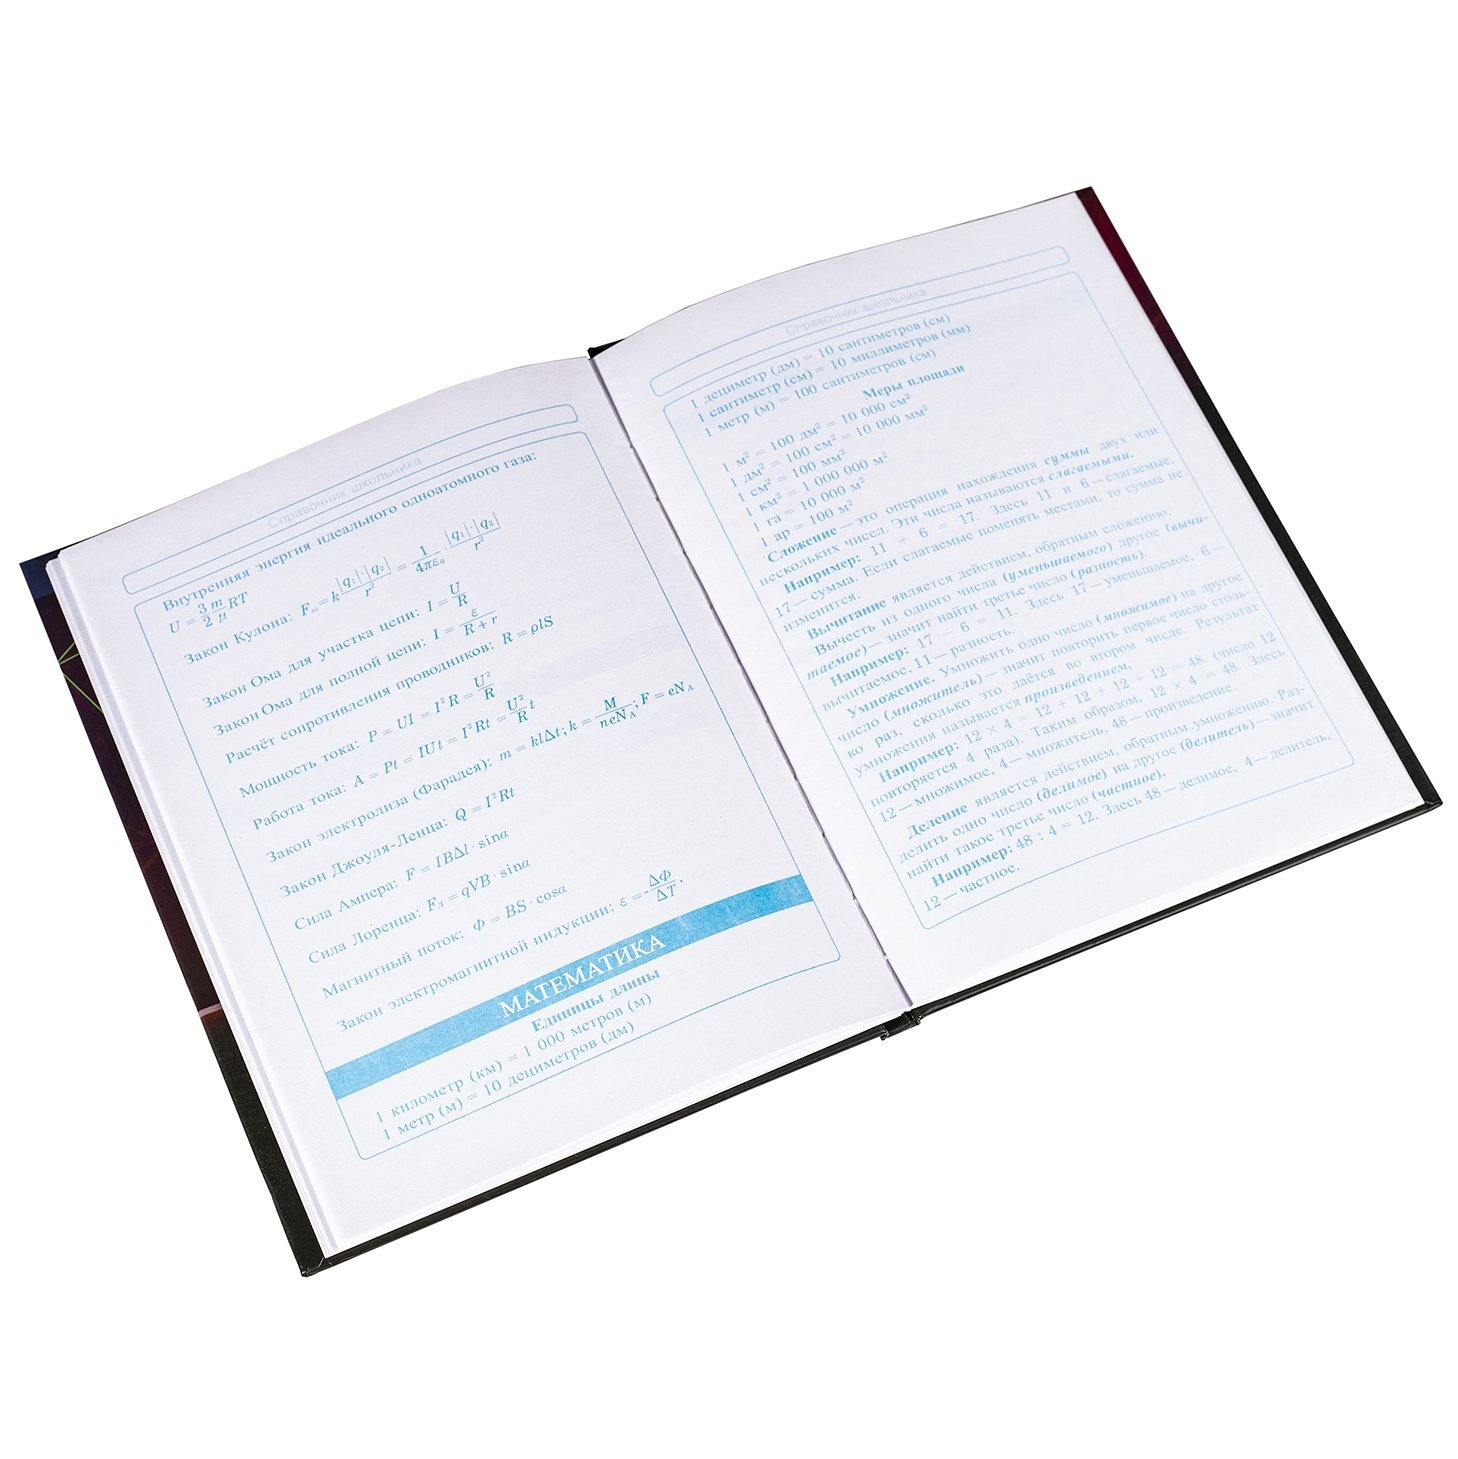 Справочник школьника
Внутренняя энергия идеального одноатомного газа:
U = 3/2 m/μ RT
Закон Кулона: Fэл = k |q₁|·|q₂| / r² = 1/4πε₀ · |q₁|·|q₂| / r²
Закон Ома для участка цепи: I = U/R
Закон Ома для полной цепи: I = ε/R + r
Расчёт сопротивления проводников: R = ρlS
Мощность тока: P = UI = I²R = U²/R
Работа тока: A = Pt = IUt = I²Rt = U²/R t
Закон электролиза (Фарадея): m = klΔt; k = M/neNA; F = eNA
Закон Джоуля-Ленца: Q = I²Rt
Сила Ампера: F = IBΔl · sinα
Сила Лоренца: Fл = qVB · sinα
Магнитный поток: Ф = BS · cosα
Закон электромагнитной индукции: ε = -ΔФ/ΔT.
МАТЕМАТИКА
Единицы длины
1 километр (км) = 1 000 метров (м)
1 метр (м) = 10 дециметров (дм)
Справочник школьника
1 дециметр (дм) = 10 сантиметров (см)
1 сантиметр (см) = 10 миллиметров (мм)
1 метр (м) = 100 сантиметров (см)
Меры площади
1 м² = 100 дм² = 10 000 см²
1 дм² = 100 см² = 10 000 мм²
1 см² = 100 мм²
1 км² = 1 000 000 м²
1 га = 10 000 м²
1 ар = 100 м²
Сложение — это операция нахождения суммы двух или
нескольких чисел. Эти числа называются слагаемыми.
Например: 11 + 6 = 17. Здесь 11 и 6 — слагаемые,
17 — сумма. Если слагаемые поменять местами, то сумма не
изменится.
Вычитание является действием, обратным сложению.
Вычесть из одного числа (уменьшаемого) другое (вычи-
таемое) — значит найти третье число (разность).
Например: 17 − 6 = 11. Здесь 17 — уменьшаемое, 6 —
вычитаемое, 11 — разность.
Умножение. Умножить одно число (множимое) на другое
число (множитель) — значит повторить первое число столь-
ко раз, сколько это даётся во втором числе. Результат
умножения называется произведением.
Например: 12 × 4 = 12 + 12 + 12 + 12 = 48 (число 12
повторяется 4 раза). Таким образом, 12 × 4 = 48. Здесь
12 — множимое, 4 — множитель, 48 — произведение.
Деление является действием, обратным умножению. Раз-
делить одно число (делимое) на другое (делитель) — значит
найти такое третье число (частное).
Например: 48 : 4 = 12. Здесь 48 — делимое, 4 — делитель,
12 — частное.